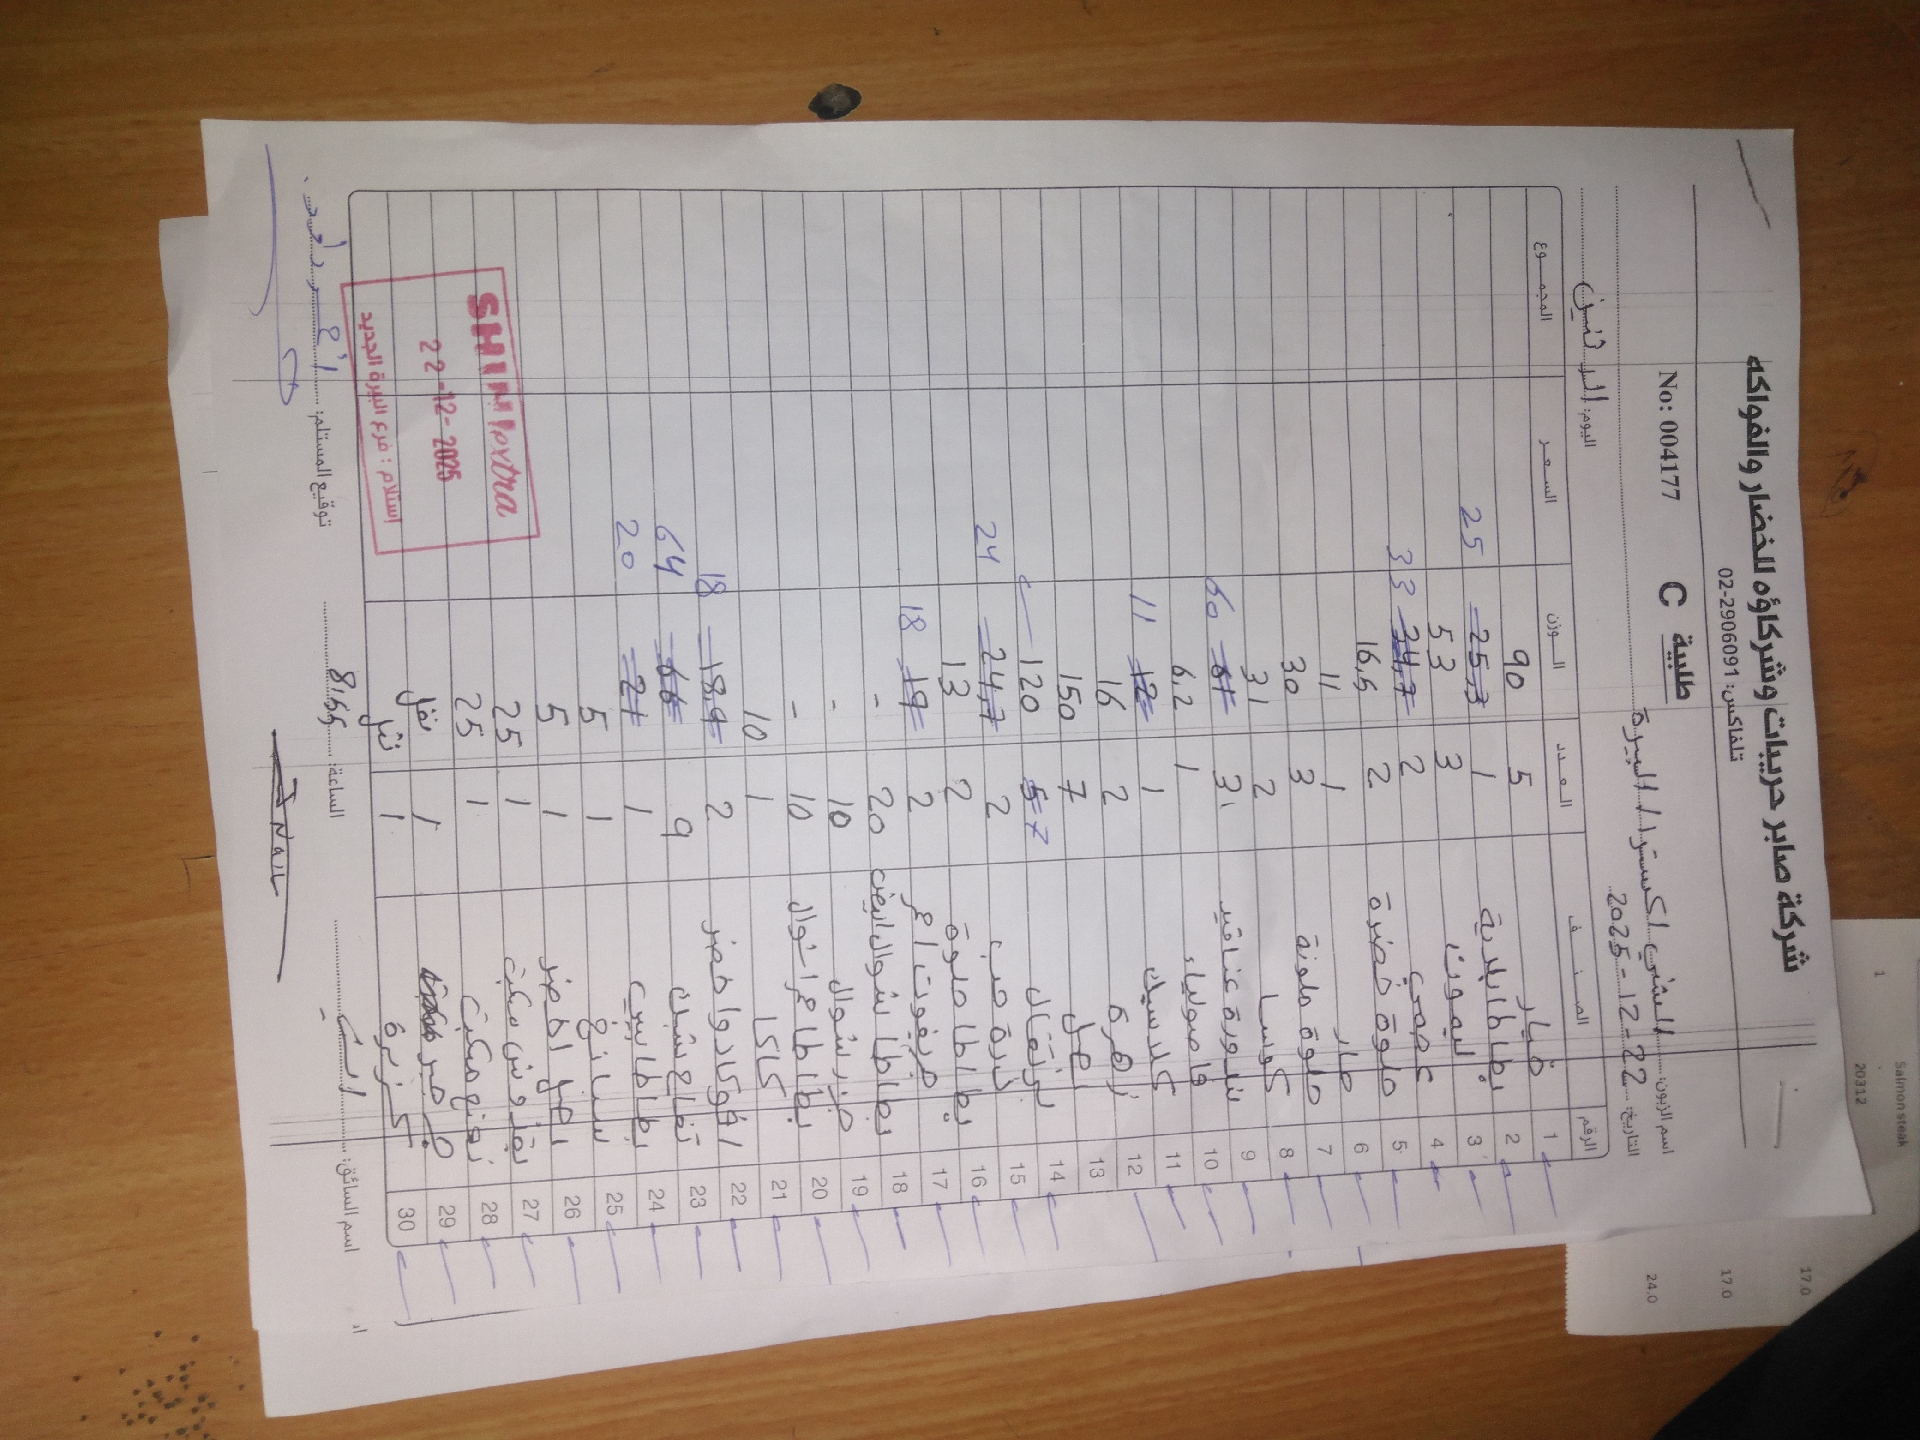 شركة صابر حربيات وشركاؤه للخضار والفواكه
تلفاكس: 02-2906091
No: 004177 طلبية C
اسم الزبون: الشني اكسترا / البيرة
التاريخ: 22-12-2025 اليوم: الاثنين
الرقم الصنف العدد الوزن السعر المجموع
1 خيار 5 90
2 بطاطا بلدية 1 25.3 25
3 ليمون 3 53
4 عجمي 2 24,7 33
5 حلوة خضرة 2 16,5
6 حار 1 11
7 حلوة ملونة 3 30
8 كوسا 2 31
9 بندورة عناقيد 3 61 60
10 فاصولياء 1 6,2
11 كلاسيك 1 12 11
12 زهرة 2 16
13 بصل 7 150
14 برتقال 5 7 120
15 ذرة حب 2 24,7 24
16 بطاطا حلوة 2 13
17 جريفوت أع 2 19 18
18 بطاطا شوال ابيض 20 -
19 جزر شوال 10 -
20 بطاطا ع شوال 10 -
21 كاكا 1 10
22 افوكادو اخضر 2 18,9 18
23 تفاح شتيل 9 66 64
24 بطاطا بيبي 1 21 20
25 سبانخ 1 5
26 بصل اخضر 1 5
27 بقدونس مكبت 1 25
28 نعنع مكبت 1 25
29 جرجير 1 نقل
30 كزبرة 1 نقل
SHINI extra
22-12-2025
استلام : فرع البيرة الجديد
اسم السائق: الساعة: 8,55 توقيع المستلم:
NAIL
Salmon steak
20312
1
17.0
17.0
24.0